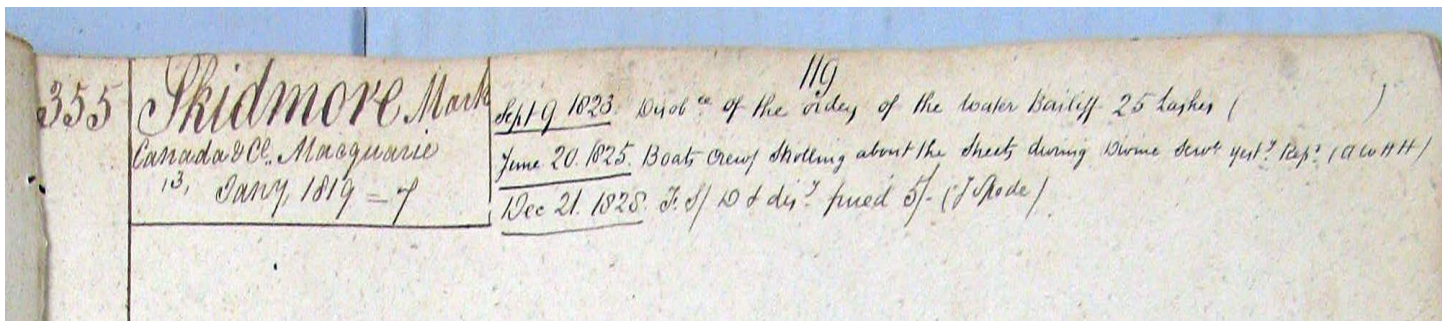 119
355 Skidmore Mark
Canada & Cl. Macquarie
13, Jany, 1819 = 7
Sept 9 1823. Disobce of the orders of the Water Bailiff 25 Lashes ( )
June 20. 1825. Boats Crew/ Strolling about the Streets during Divine Serve yesty Repd (AWHH)
Dec 21. 1828. F.S/ D & disy fined 5/- (J Spode)